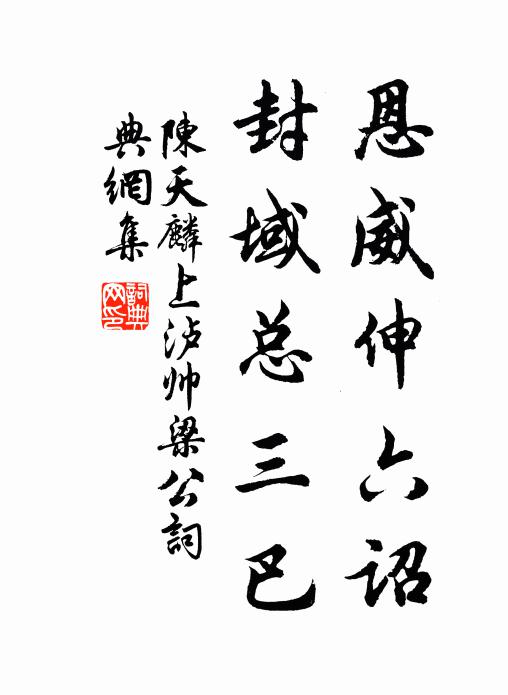 恩威伸六诏
封域总三巴
陳天麟上泸帅梁公詞
典網集
詞典网印